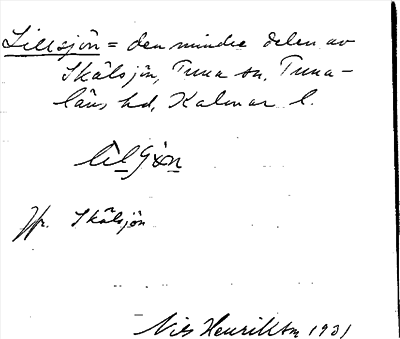 Lillsjön = den mindre delen av
Skälsjön, Tuna sn, Tuna-
läns hd, Kalmar l.
Jfr. Skälsjön
Nils Henriksson 1931